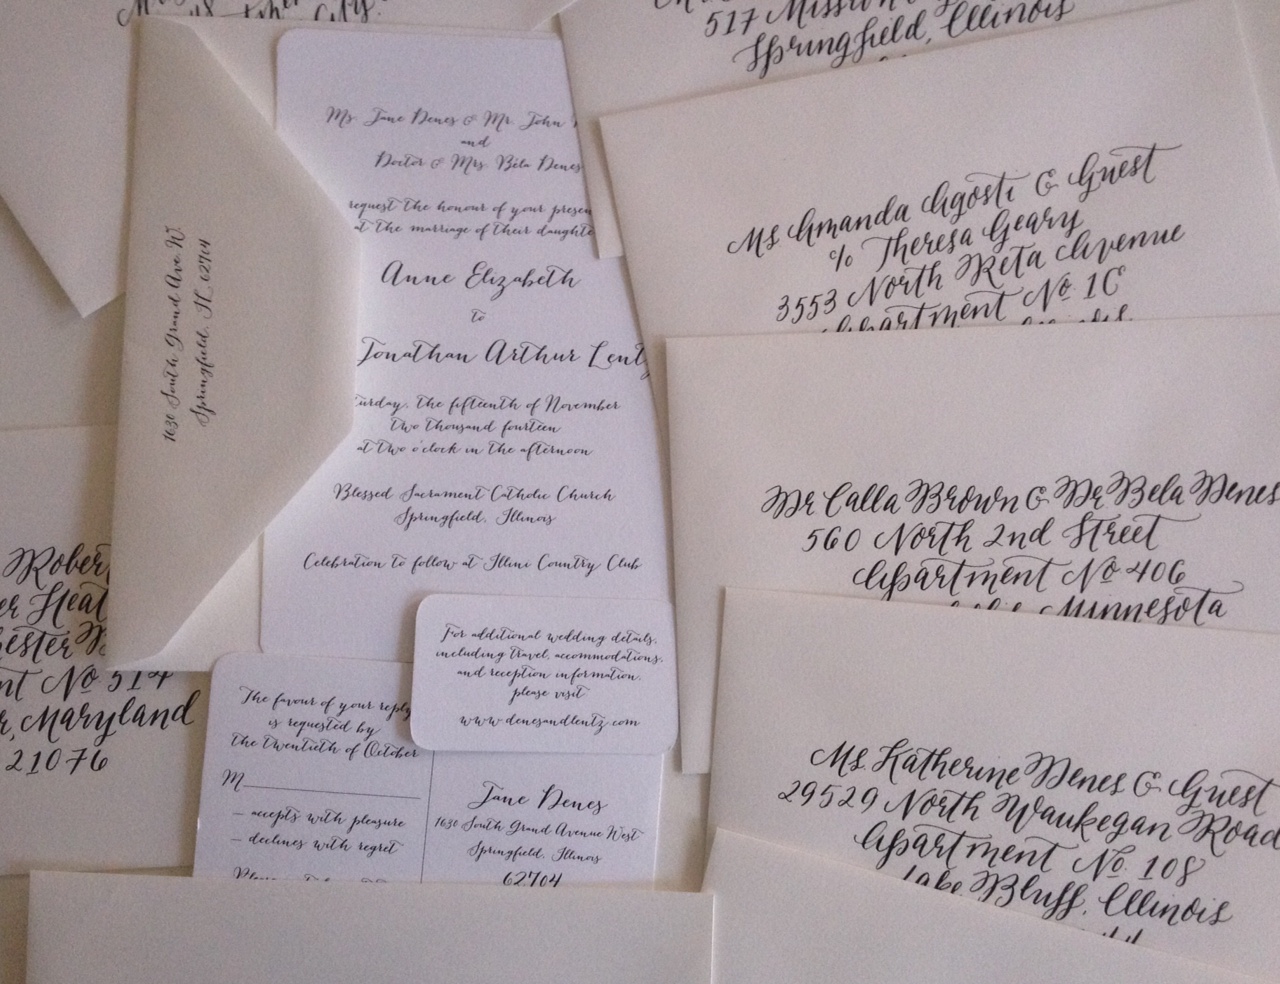 City.
517 Mission
Springfield, Illinois
Ms. Jane Denes & Mr. John
and
Doctor & Mrs. Béla Denes
request the honour of your
at the marriage of their
Anne Elizabeth
to
Jonathan Arthur
the fifteenth of November
two thousand fourteen
at two o'clock in the afternoon
Blessed Sacrament Catholic Church
Springfield, Illinois
Celebration to follow at Illini Country Club
1630 South Grand Ave. W
Springfield, IL 62704
Ms Amanda Agosti & Guest
c/o Theresa Geary
3553 North Reta Avenue
Apartment No. 1C
Dr Calla Brown & Dr Bela Denes
560 North 2nd Street
Apartment No 406
Minnesota
Robert
No 514
Maryland
21076
For additional wedding details,
including travel, accommodations,
and reception information,
please visit
www.denesandlentz.com
The favour of your reply
is requested by
the twentieth of October
M
— accepts with pleasure
— declines with regret
Jane Denes
1630 South Grand Avenue West
Springfield, Illinois
62704
Ms. Katherine Denes & Guest
29529 North Waukegan Road
Apartment No. 108
Lake Bluff, Illinois